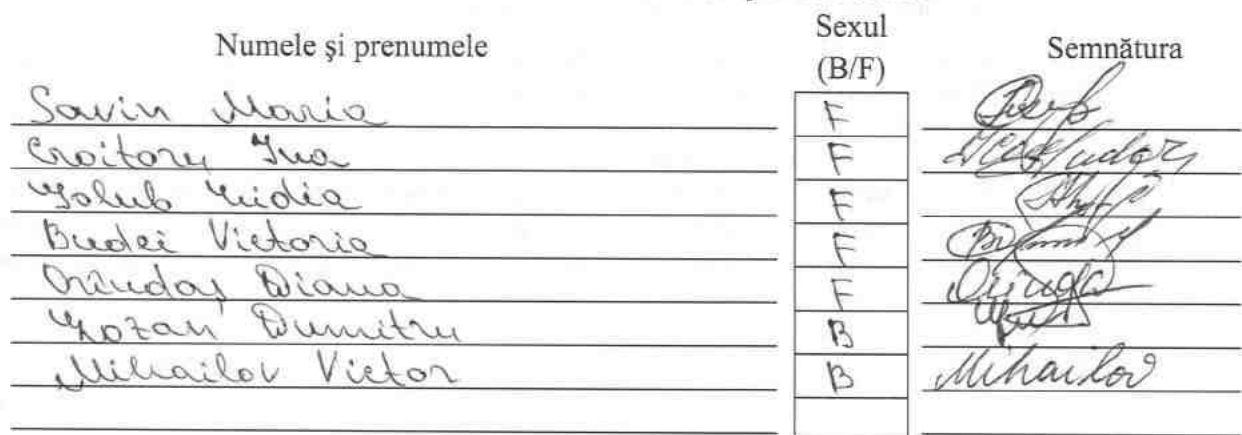 Numele și prenumele Sexul (B/F) Semnătura
Savin Maria F
Croitoru Ina F
Golub Lidia F
Budei Victoria F
Orîndaș Diana F
Gozan Dumitru B
Mihailov Victor B Mihailov